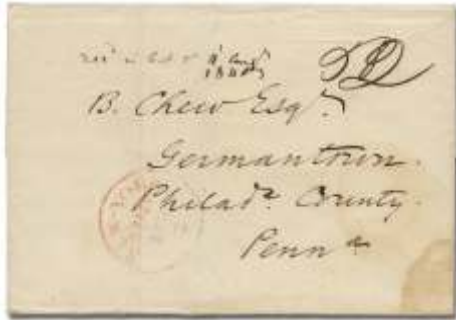 B. Chew Esqr.
Germantown.
Philada. County.
Penna